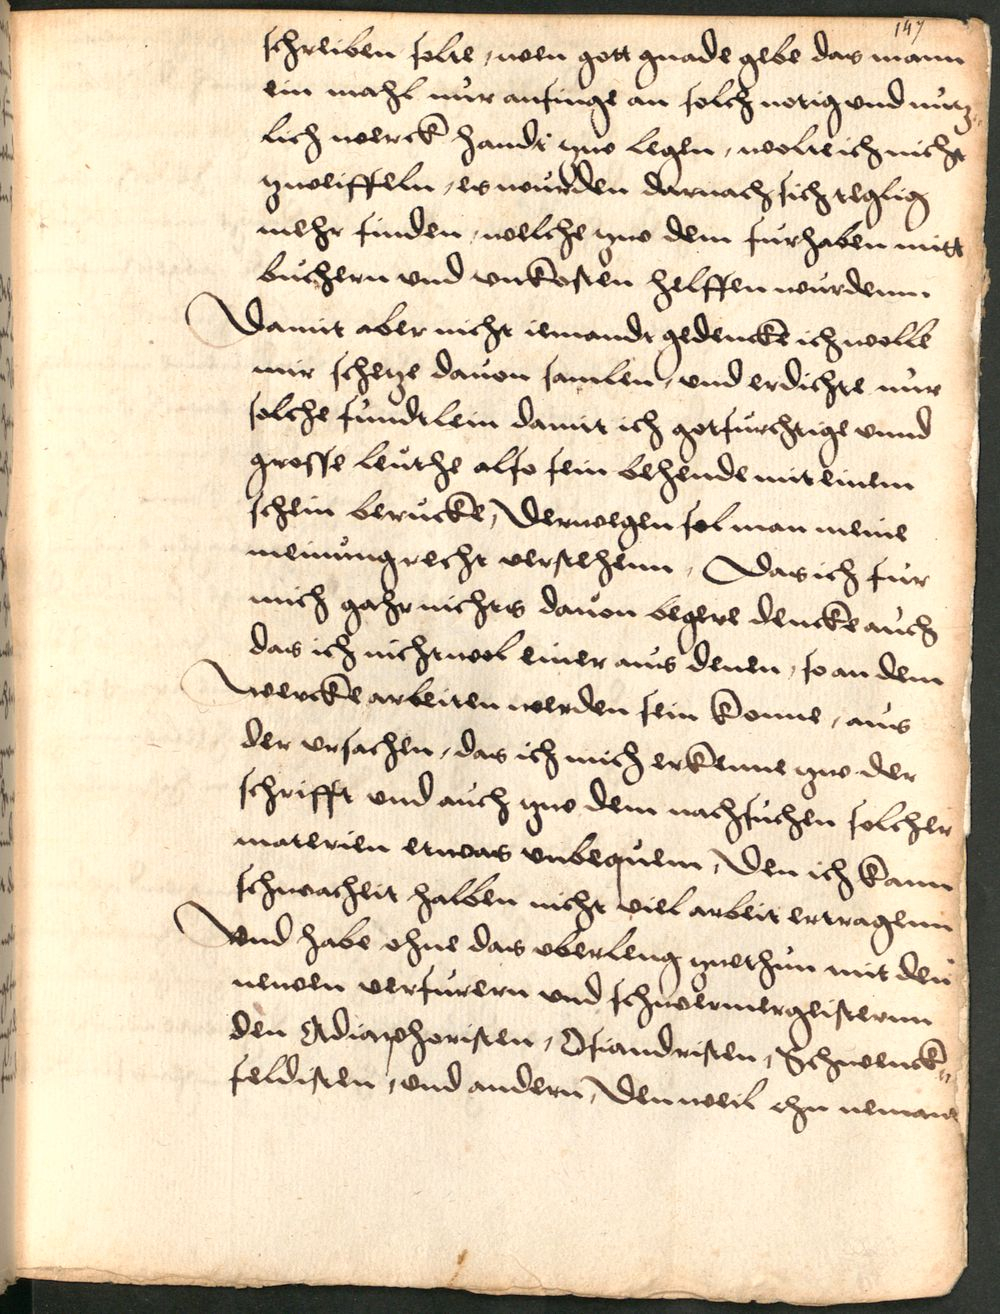 147
schreiben solte, wen gott gnade gebe das mann
ein mahl nur anfinge an solch notig und nutz-
lich werck handt zwo legen, wolte ich nicht
zweiffeln, es wurden darnach sich teglig
mehr finden, welche zwo dem furhaben mitt
buchern und unkosten helffen wurdenn
Damit aber nicht iemandt gedencke ich wolle
mir schetze davon samlen, und erdichte nur
solche fundtlein damit ich gotfurchtige unnd
grosse leuthe also fein behende mit einem
schein berucke, Derwegen sol man meine
meinung recht verstehenn, Das ich fur
mich gahr nichts davon begere dencke auch
das ich nicht wol einer aus denen, so an dem
wercke arbeiten werden sein konne, aus
der ursachen, das ich mich erkenne zwo der
schrifft und auch zwo dem nachsuchen solcher
materien etwas unbequem, Den ich kann
schwacheit halben nicht viel arbeit ertragenn
Und habe ohne das uberleng zwothun mit den
newen verfurern und schwermergeisternn
den Adiaphoristen, Osiandristen, Schwenck-
feldisten, und andern, Den weil ehn nemant